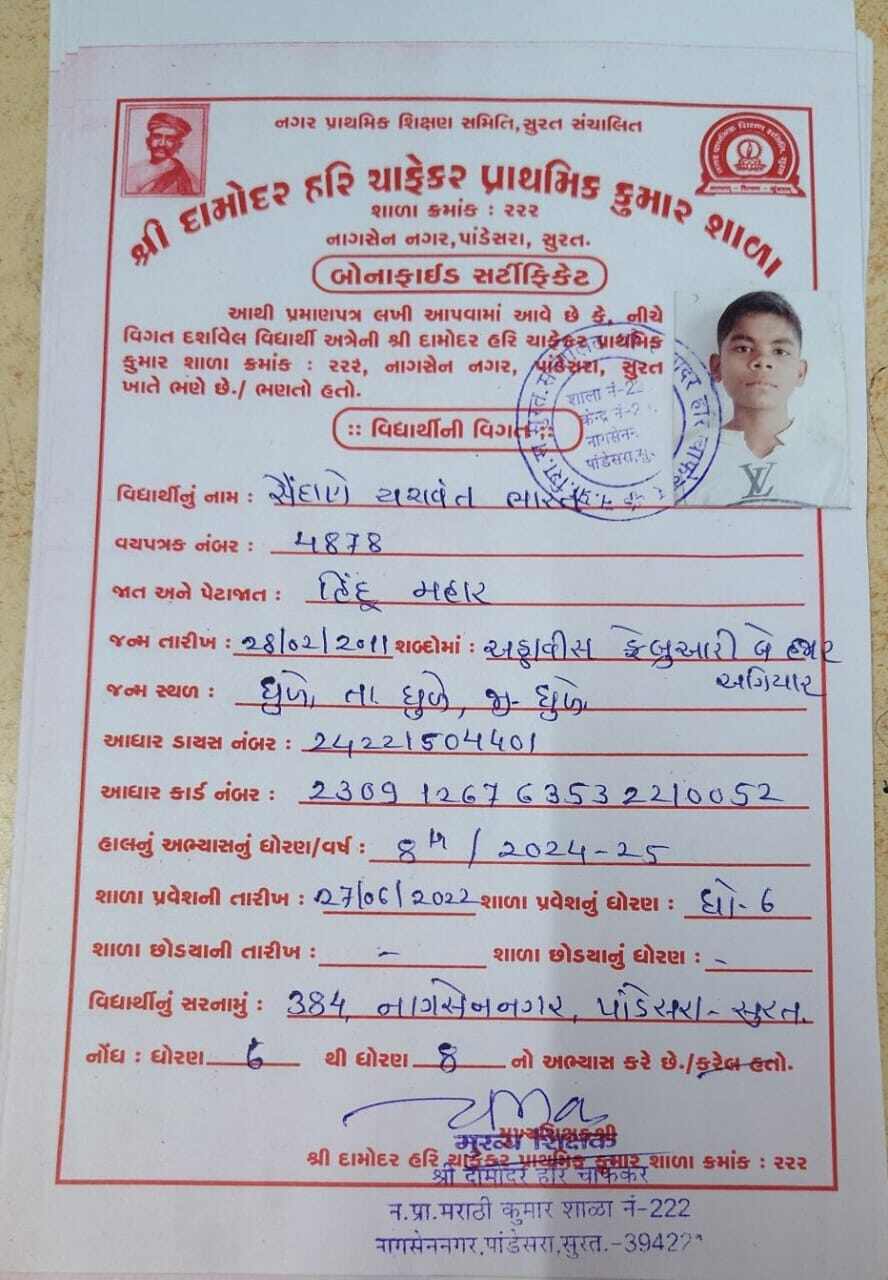 નગર પ્રાથમિક શિક્ષણ સમિતિ,સુરત સંચાલિત
શ્રી દામોદર હરિ ચાફેકર પ્રાથમિક કુમાર શાળા
શાળા ક્રમાંક : ૨૨૨
નાગસેન નગર,પાંડેસરા, સુરત.
બોનાફાઈડ સર્ટીફિકેટ
આથી પ્રમાણપત્ર લખી આપવામાં આવે છે કે, નીચે
વિગત દર્શાવેલ વિદ્યાર્થી અત્રેની શ્રી દામોદર હરિ ચાફેકર પ્રાથમિક
કુમાર શાળા ક્રમાંક : ૨૨૨, નાગસેન નગર, પાંડેસરા, સુરત
ખાતે ભણે છે./ ભણતો હતો.
शाला नं-22
केन्द्र नं-2
नागसेन
पांडेसरा,सु.
:: વિદ્યાર્થીની વિગત ::
વિદ્યાર્થીનું નામ : સૈંદાણે યશવંત ભારત
વયપત્રક નંબર : ૫૮૭૮
જાત અને પેટાજાત : હિંદૂ મહાર
જન્મ તારીખ : ૨૮/૦૨/૨૦૧૧ શબ્દોમાં : અઠ્ઠાવીસ ફેબ્રુઆરી બે હજાર
અગિયાર
જન્મ સ્થળ : ધુળે, તા. ધુળે, જી- ધુળે.
આધાર ડાયસ નંબર : 24221504401
આધાર કાર્ડ નંબર : 2309 1267 6353 2210052
હાલનું અભ્યાસનું ધોરણ/વર્ષ : 8 th / 2024-25
શાળા પ્રવેશની તારીખ : 27/06/2022 શાળા પ્રવેશનું ધોરણ : ધો- 6
શાળા છોડયાની તારીખ : - શાળા છોડયાનું ધોરણ : -
વિદ્યાર્થીનું સરનામું : 384, નાગસેનનગર, પાંડેસરા - સુરત.
નોંધ : ધોરણ 6 થી ધોરણ 8 નો અભ્યાસ કરે છે./કરેલ હતો.
मुख्य शिक्षक
શ્રી દામોદર હરિ ચાફેકર પ્રાથમિક કુમાર શાળા ક્રમાંક : ૨૨૨
श्री दामोदर हरि चाफेकर
न.प्रा.मराठी कुमार शाळा नं-222
नागसेननगर,पांडेसरा,सुरत.-39422